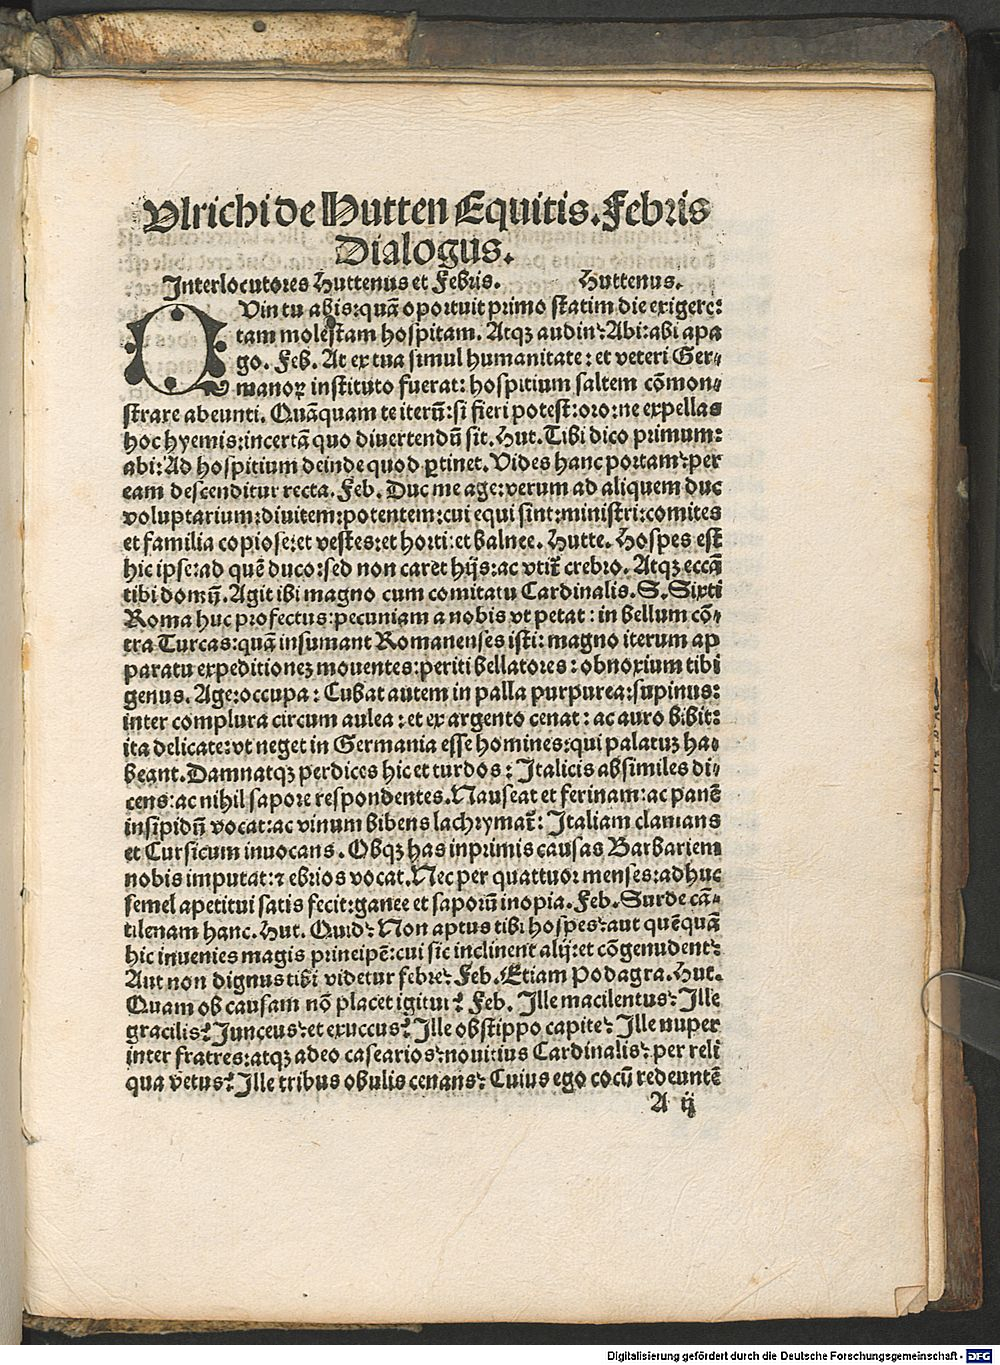 Vlrichi de Hutten Equitis. Febris
Dialogus.
Interlocutores Huttenus et Febris. Huttenus.
QVin tu abis: quā oportuit primo statim die exigere:
tam molestam hospitam. Atqꝫ audin? Abi: abi apa
go. Feb. At ex tua simul humanitate: et veteri Ger-
manoꝝ instituto fuerat: hospitium saltem cōmon-
strare abeunti. Quāquam te iterū: si fieri potest: oro: ne expellas
hoc hyemis: incertā quo divertendū sit. Hut. Tibi dico primum:
abi: Ad hospitium deinde quod ꝑtinet. Vides hanc portam? per
eam descenditur recta. Feb. Duc me age: verum ad aliquem duc
voluptarium: divitem: potentem: cui equi sint: ministri: comites
et familia copiose: et vestes: et horti: et balnee. Hutte. Hospes est
hic ipse: ad quē duco: sed non caret hijs: ac vtit̃ crebro. Atqꝫ eccā
tibi domū. Agit ibi magno cum comitatu Cardinalis. S. Sixti
Roma huc profectus: pecuniam a nobis vt petat: in bellum cō-
tra Turcas: quā insumant Romanenses isti: magno iterum ap
paratu expeditioneꝫ moventes: periti bellatores: obnoxium tibi
genus. Age: occupa: Cubat autem in palla purpurea: supinus:
inter complura circum aulea: et ex argento cenat: ac auro bibit:
ita delicate: vt neget in Germania esse homines: qui palatuꝫ ha-
beant. Damnatqꝫ perdices hic et turdos: Italicis absimiles di-
cens: ac nihil sapore respondentes. Nauseat et ferinam: ac panē
insipidū vocat: ac vinum bibens lachrymat̃: Italiam clamans
et Cursicum invocans. Obqꝫ has inprimis causas Barbariem
nobis imputat: ⁊ ebrios vocat. Nec per quattuor menses: adhuc
semel apetitui satis fecit: ganee et saporū inopia. Feb. Surde cā-
tilenam hanc. Hut. Quid? Non aptus tibi hospes? aut quēquā
hic invenies magis principē: cui sic inclinent alij: et cōgenudent?
Aut non dignus tibi videtur febre? Feb. Etiam Podagra. Hut.
Quam ob causam nō placet igitur? Feb. Ille macilentus? Ille
gracilis? Junceus? et exuccus? Ille obstippo capite? Ille nuper
inter fratres: atqꝫ adeo casearios? novitius Cardinalis? per reli
qua vetus? Ille tribus obulis cenans? Cuius ego cocū redeuntē
A ij
Digitalisierung gefördert durch die Deutsche Forschungsgemeinschaft - DFG